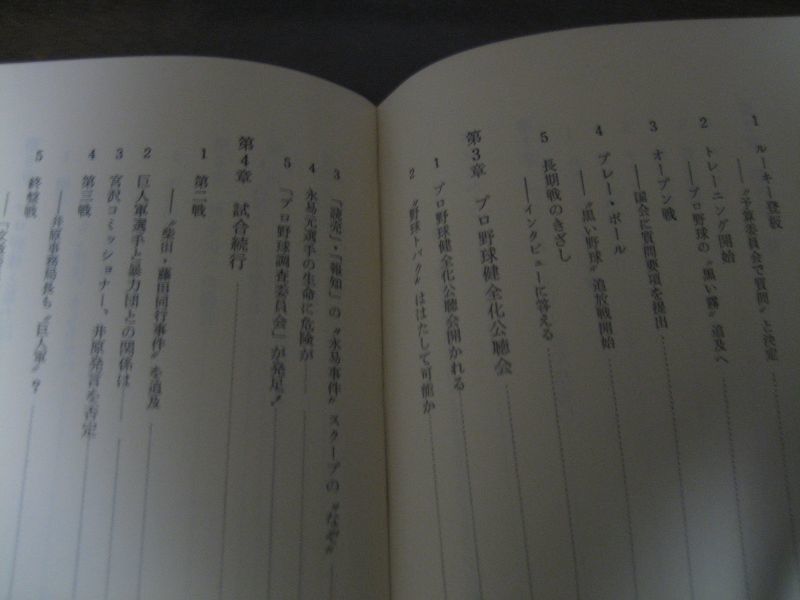 1 ルーキー登板
――〝予算委員会で質問〟と決定
2 トレーニング開始
――プロ野球の〝黒い霧〟追及へ
3 オープン戦
――国会に質問要項を提出
4 プレー・ボール
――〝黒い野球〟追放戦開始
5 長期戦のきざし
――インタビューに答える
第3章 プロ野球健全化公聴会
1 プロ野球健全化公聴会開かれる
2 〝野球トバク〟ははたして可能か
3 「読売」・「報知」の〝永易事件〟スクープの〝なぞ〟
4 永易元選手の生命に危険が――
5 「プロ野球調査委員会」が発足!
第4章 試合続行
1 第二戦
――〝柴田・藤田同行事件〟を追及
2 巨人軍選手と暴力団との関係は――
3 宮沢コミッショナー、井原発言を否定
4 第三戦
――井原事務局長も〝巨人軍〟?
5 終盤戦